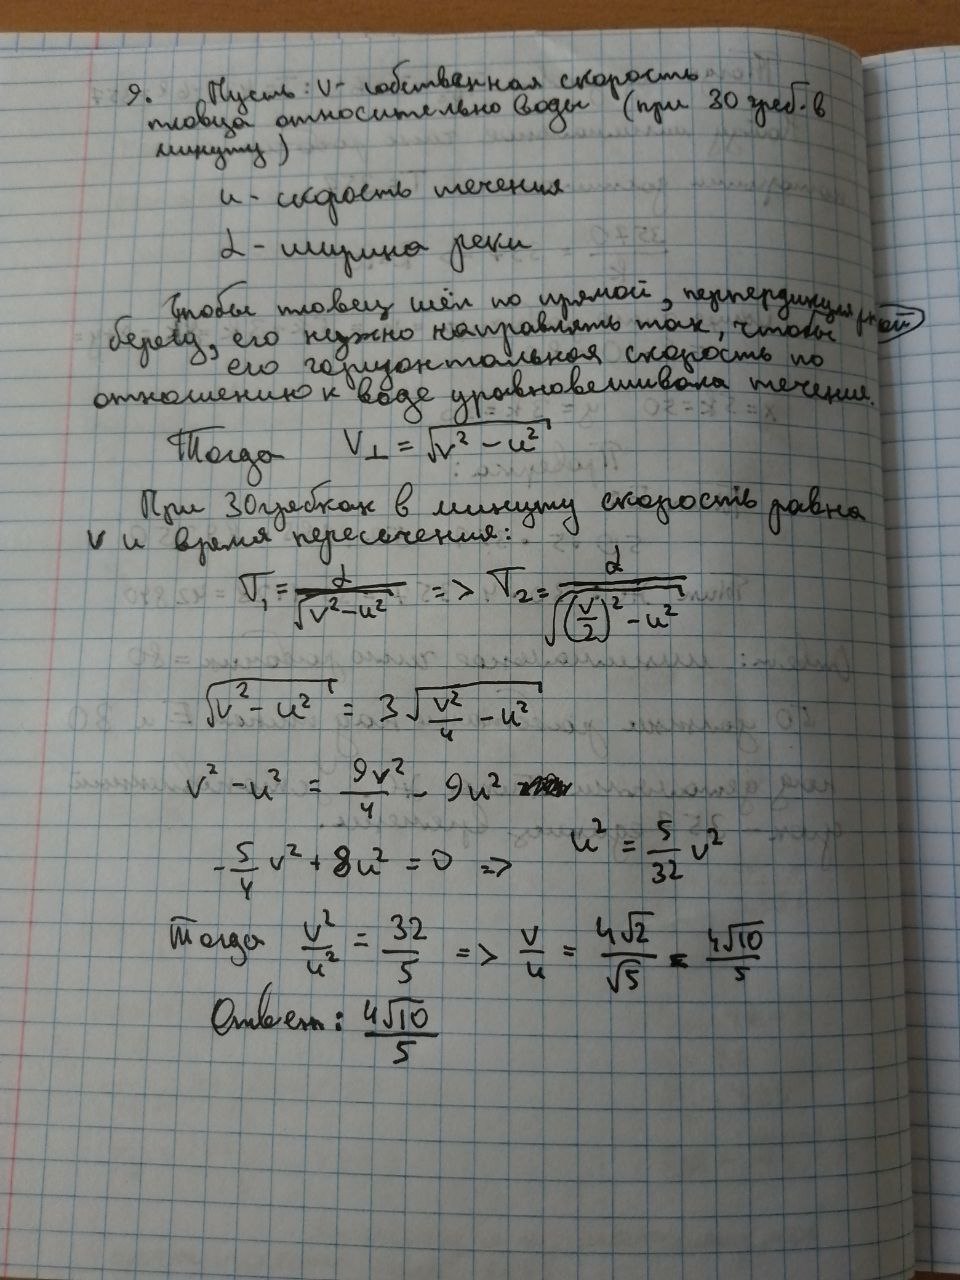 9. Пусть: v - собственная скорость
пловца относительно воды (при 30 греб. в
минуту)
u - скорость течения
d - ширина реки
Чтобы пловец шёл по прямой, перпендикулярной
берегу, его нужно направлять так, чтобы
его горизонтальная скорость по
отношению к воде уравновешивала течение.
Тогда V⊥ = √(v² - u²)
При 30 гребках в минуту скорость равна
v и время пересечения:
T₁ = d/√(v² - u²) => T₂ = d/√((v/2)² - u²)
√(v² - u²) = 3√(v²/4 - u²)
v² - u² = 9v²/4 - 9u²
-5/4 v² + 8u² = 0 => u² = 5/32 v²
Тогда v²/u² = 32/5 => v/u = 4√2/√5 = 4√10/5
Ответ: 4√10/5